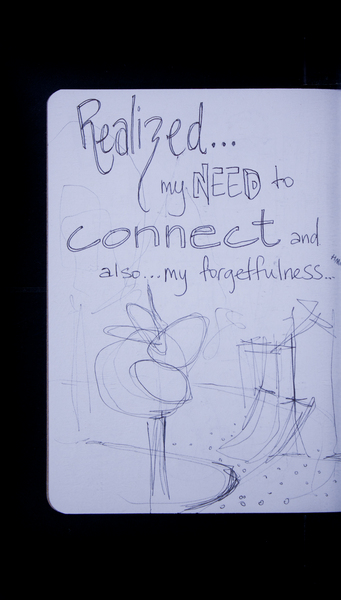 Realized...
my NEED to
connect and
also...my forgetfulness...